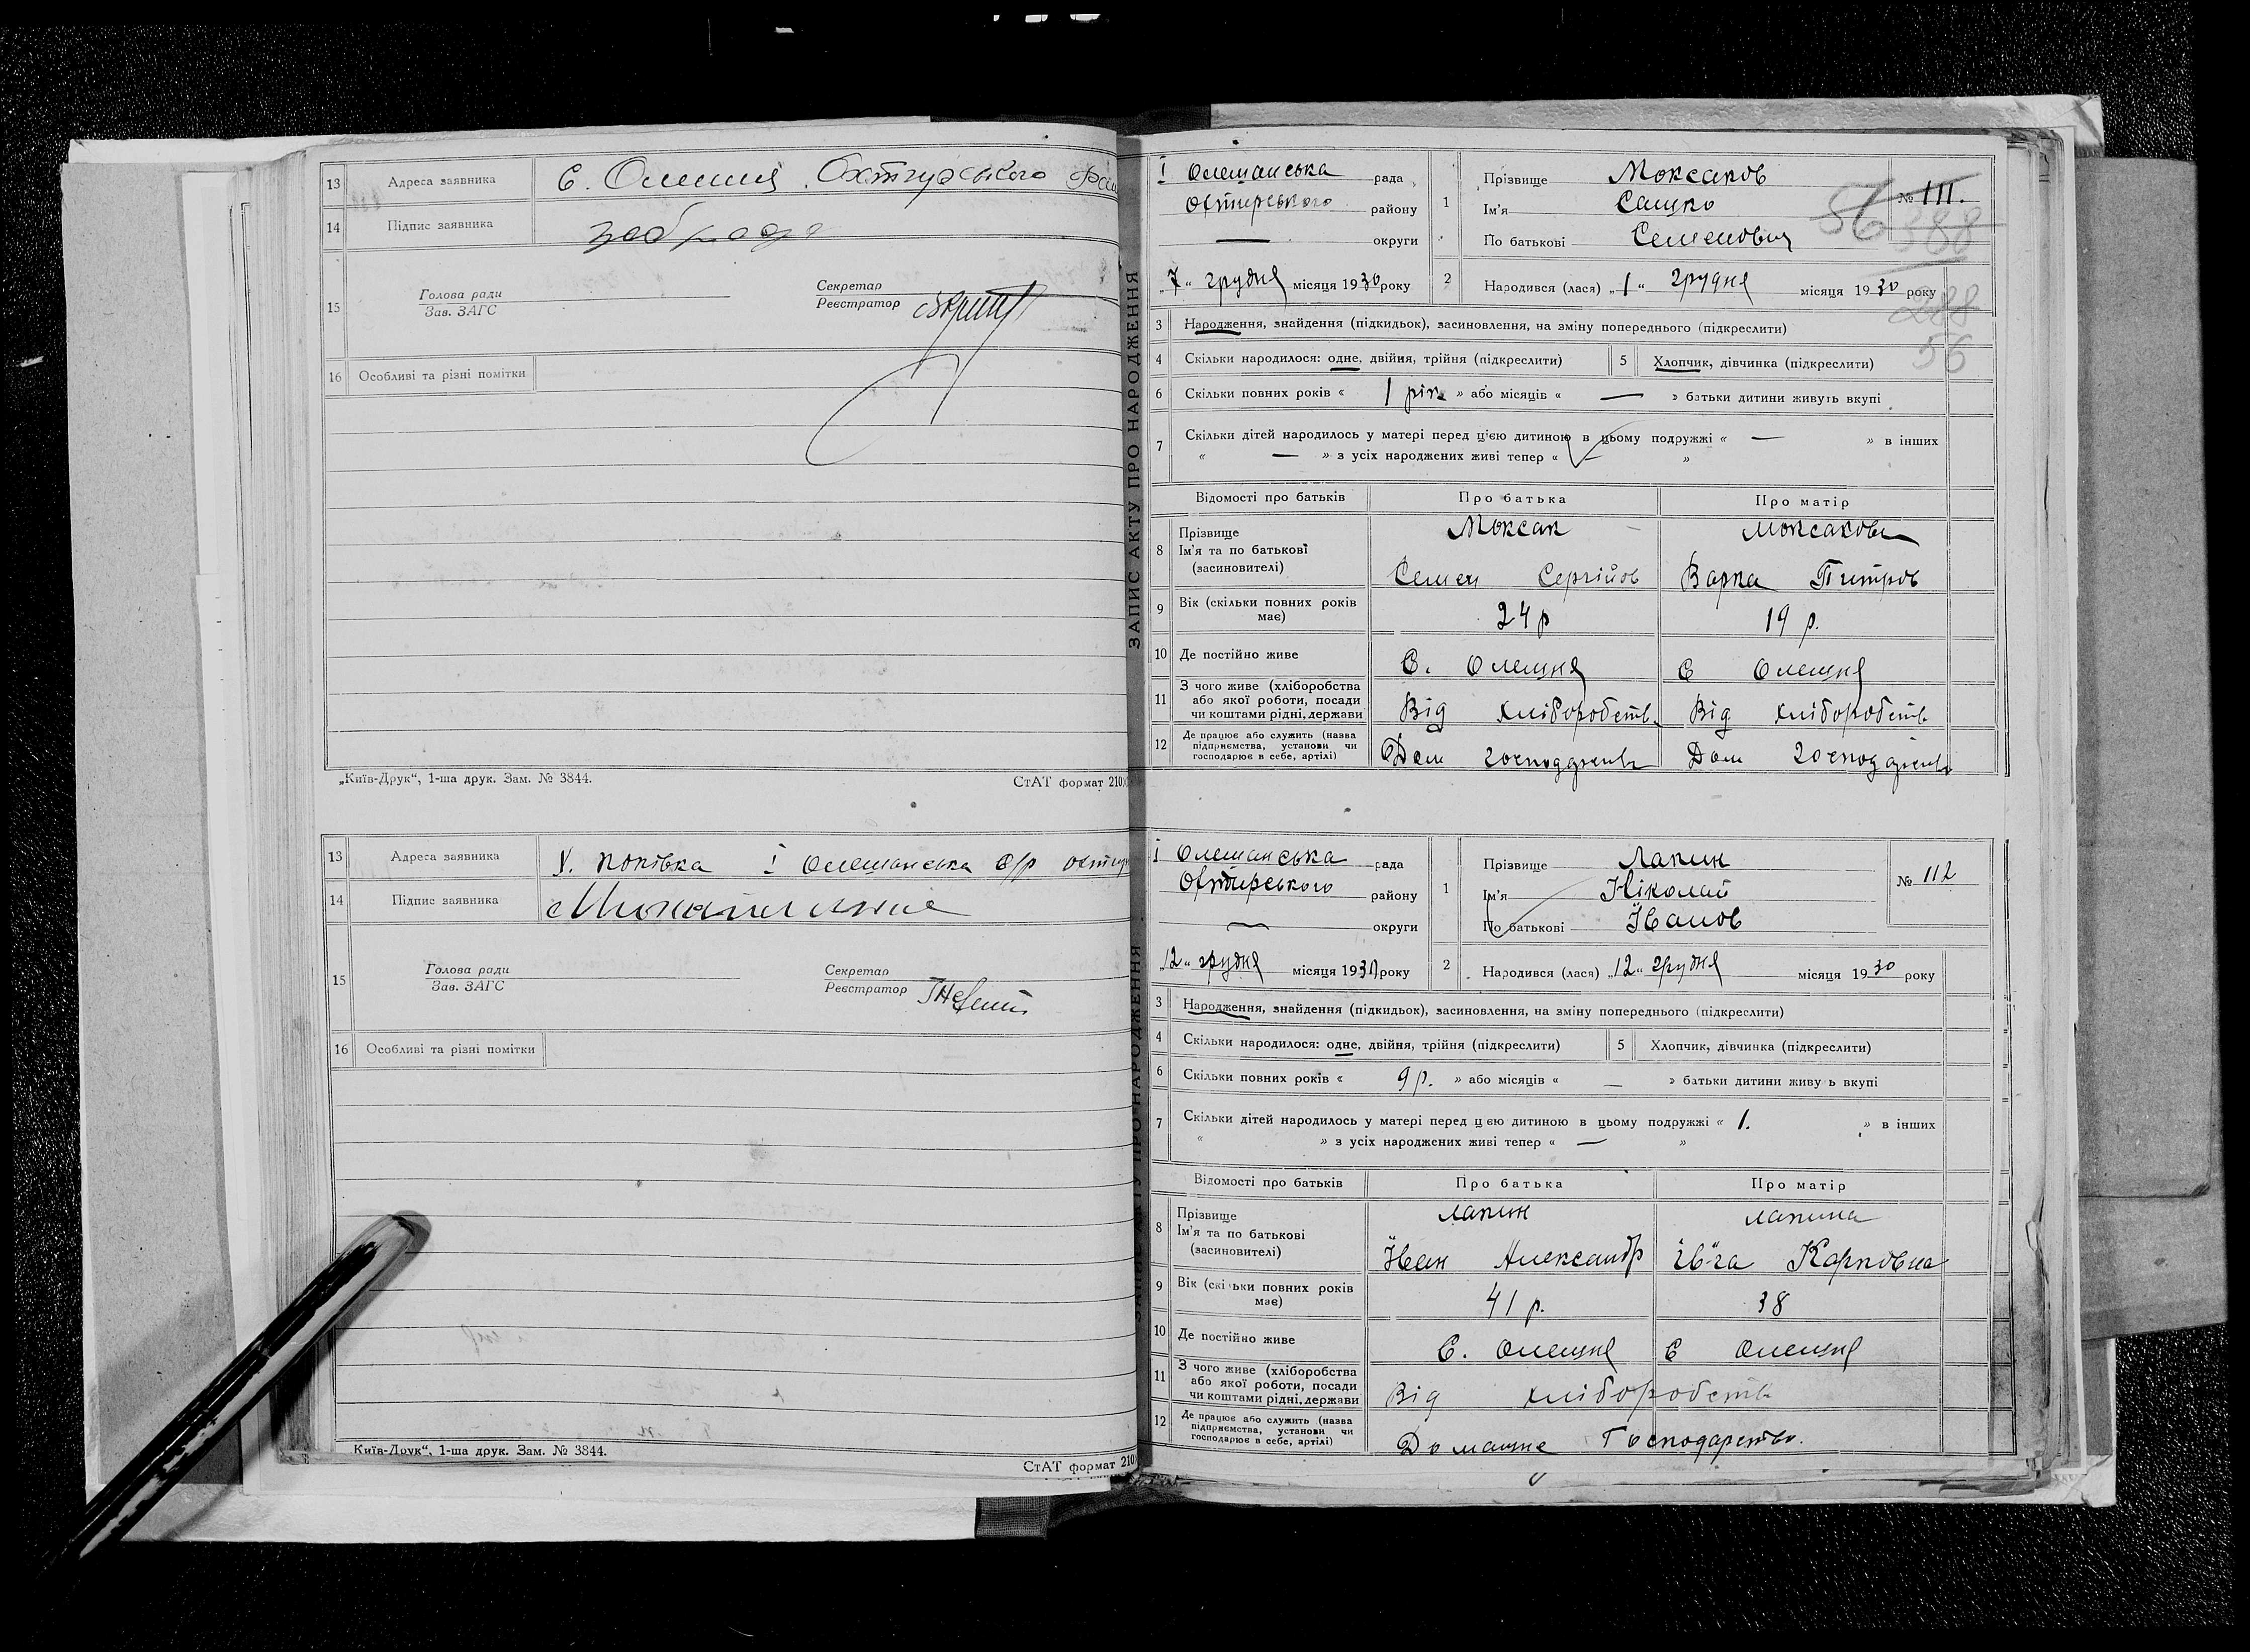 13 Адреса заявника С. Олешня Охтирського
14 Підпис заявника
15 Голова ради Секретар
Зав. ЗАГС Реєстратор
16 Особливі та різні помітки
„Київ-Друк“, 1-ша друк. Зам. № 3844. СтАТ формат 210
13 Адреса заявника Х. Попівка І Олешанська с/р
14 Підпис заявника
15 Голова ради Секретар
Зав. ЗАГС Реєстратор
16 Особливі та різні помітки
Київ-Друк“, 1-ша друк. Зам. № 3844.
СтАТ формат 210
ЗАПИС АКТУ ПРО НАРОДЖЕННЯ
І Олешанська рада
Охтирського району
— округи
„7“ грудня місяця 1930 року
1 Прізвище Моксаков
Ім'я Сашко
По батькові Семенович
№ 111.
56 388
2 Народився (лася) „1“ грудня місяця 1930 року
288
56
3 Народження, знайдення (підкидьок), засиновлення, на зміну попереднього (підкреслити)
4 Скільки народилося: одне, двійня, трійня (підкреслити) 5 Хлопчик, дівчинка (підкреслити)
6 Скільки повних років « 1 рік » або місяців « — » батьки дитини живуть вкупі
7 Скільки дітей народилось у матері перед цією дитиною в цьому подружжі « — » в інших
« — » з усіх народжених живі тепер « — »
Відомості про батьків Про батька Про матір
8 Прізвище Моксак Моксакова
Ім'я та по батькові
(засновителі) Семен Сергійов Варка Питров
9 Вік (скільки повних років має) 24 р 19 р.
10 Де постійно живе С. Олешня С Олешня
11 З чого живе (хліборобства
або якої роботи, посади
чи коштами рідні, держави Від хліборобств Від хліборобств
12 Де працює або служить (назва
підприємства, установи чи
господарює в себе, артілі) Дом господарств Дом господарств
ЗАПИС АКТУ ПРО НАРОДЖЕННЯ
І Олешанська рада
Охтирського району
— округи
„12“ грудня місяця 1930 року
1 Прізвище Лапин
Ім'я Ніколай
По батькові Іванов
№ 112
2 Народився (лася) „12“ грудня місяця 1930 року
3 Народження, знайдення (підкидьок), засиновлення, на зміну попереднього (підкреслити)
4 Скільки народилося: одне, двійня, трійня (підкреслити) 5 Хлопчик, дівчинка (підкреслити)
6 Скільки повних років « 9 р. » або місяців « — » батьки дитини живу ь вкупі
7 Скільки дітей народилось у матері перед цією дитиною в цьому подружжі « 1. » в інших
« » з усіх народжених живі тепер « — »
Відомості про батьків Про батька Про матір
8 Прізвище Лапин Лапина
Ім'я та по батькові
(засиновителі) Іван Александр Карповна
9 Вік (скільки повних років має) 41 р. 38
10 Де постійно живе С. Олешня С Олешня
11 З чого живе (хліборобства
або якої роботи, посади
чи коштами рідні, держави Від хліборобств
12 Де працює або служить (назва
підприємства, установи чи
господарює в себе, артілі) Домашнє Господарство.